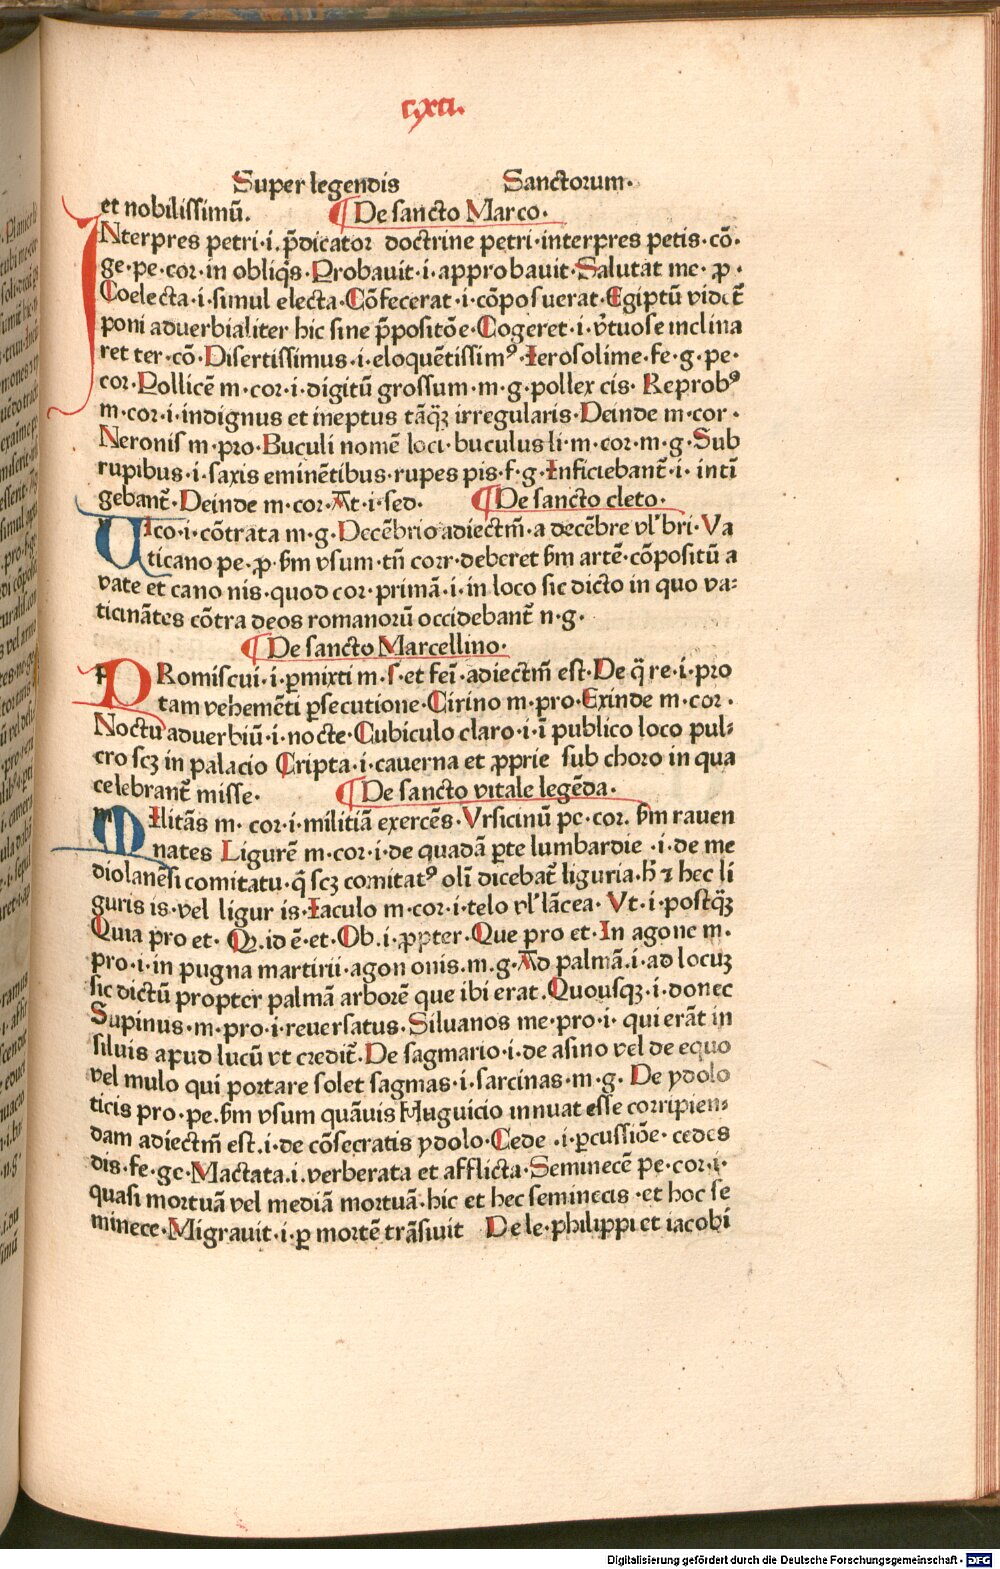 cxci.
Super legendis Sanctorum.
et nobilissimū. ¶ De sancto Marco.
INterpres petri·i·p̄dicator doctrine petri·interpres petis·cō·
ge·pe·cor·in obliq̄s·Probauit·i·approbauit·Salutat me· ꝓ·
Coelecta·i·simul electa·Cōfecerat·i·cōposuerat·Egiptū videt̄
poni aduerbialiter hic sine p̄positōe·Cogeret·i·v̄tuose inclina
ret ter·cō·Disertissimus·i·eloquētissimꝰ·Ierosolime·fe·g·pe·
cor·Pollicē m·cor·i·digitū grossum·m·g·pollex cis· Reprobꝰ
m·cor·i·indignus et ineptus tāq̄ꝫ irregularis·Deinde m·cor·
Neronis m·pro·Buculi nomē loci·buculus li·m·cor·m·g·Sub
rupibus·i·saxis eminētibus·rupes pis·f·g·Inficiebant̄·i· inti
gebant̄·Deinde m·cor·At·i·sed· ¶ De sancto cleto·
Uico·i·cōtrata m·g·Decēbrio adiectm̄·a decēbre vl̓ bri·Va
ticano pe·ꝓ·ẜm vsum·tn̄ corr·deberet ẜm artē·cōpositū a
vate et cano nis·quod cor·primā·i·in loco sic dicto in quo va⸗
ticinātes cōtra deos romanorū occidebant̄ n·g·
¶ De sancto Marcellino·
PRomiscui·i·ꝑmixti m·s·et fei·adiectm̄ est·De q̄ re·i·pro
tam vehemēti ꝑsecutione·Cirino m·pro·Exinde m·cor·
Noctu aduerbiū·i·nocte·Cubiculo claro·i·ī publico loco pul⸗
cro scꝫ in palacio Cripta·i·cauerna et ꝓprie sub choro in qua
celebrant̄ misse· ¶ De sancto vitale legēda·
MIlitās m· cor·i·militiā exercēs·Vrsicinū pe·cor· ẜm rauen
nates Ligurē m·cor·i·de quadā ꝑte lumbardie ·i·de me
diolanēsi comitatu·q̄ scꝫ comitatꝰ oli dicebat̄ liguria·h̄ ⁊ hec li
guris is·vel ligur is·Iaculo m·cor·i·telo vl̓ lācea· Vt·i·postq̄ꝫ
Quia pro et· Qꝫ·id ē·et·Ob·i·ꝓpter·Que pro et·In agone m·
pro·i·in pugna martirii·agon onis·m·g·Ad palmā·i·ad locuꝫ
sic dictū propter palmā arborē que ibi erat·Quousqꝫ·i·donec
Supinus·m·pro·i·reuersatus·Siluanos me·pro·i· qui erāt in
siluis apud lucū vt credit̄·De sagmario·i·de asino vel de equo
vel mulo qui portare solet sagmas·i·sarcinas·m·g· De ydolo
ticis pro·pe·ẜm vsum quāuis Huguicio innuat esse corripien⸗
dam adiectm̄ est·i·de cōsecratis ydolo·Cede ·i·ꝑcussiōe· cedes
dis·fe·ge·Mactata·i·verberata et afflicta·Seminecē pe·cor·i·
quasi mortuā vel mediā mortuā·hic et hec seminecis ·et hoc se
minece·Migrauit·i·ꝑ mortē trāsiuit De le·philippi et iacobi
Digitalisierung gefördert durch die Deutsche Forschungsgemeinschaft - DFG